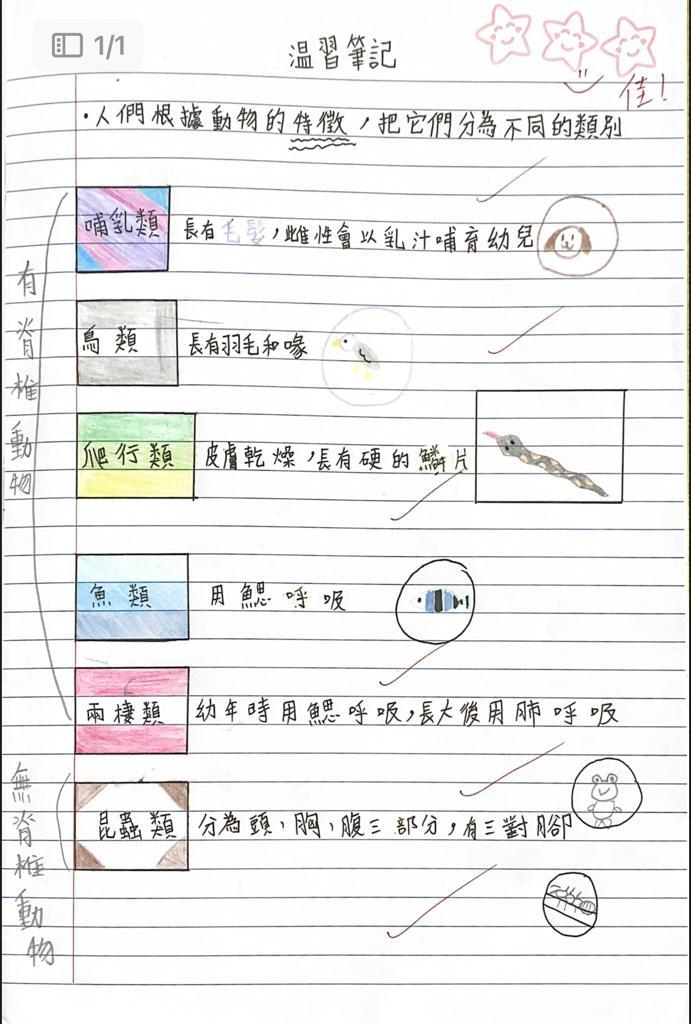 1/1
溫習筆記
佳!
·人們根據動物的特徵，把它們分為不同的類別
有脊椎動物
哺乳類 長有毛髮，雌性會以乳汁哺育幼兒
鳥類 長有羽毛和喙
爬行類 皮膚乾燥，長有硬的鱗片
魚類 用鰓呼吸
兩棲類 幼年時用鰓呼吸，長大後用肺呼吸
無脊椎動物
昆蟲類 分為頭、胸、腹三部分，有三對腳